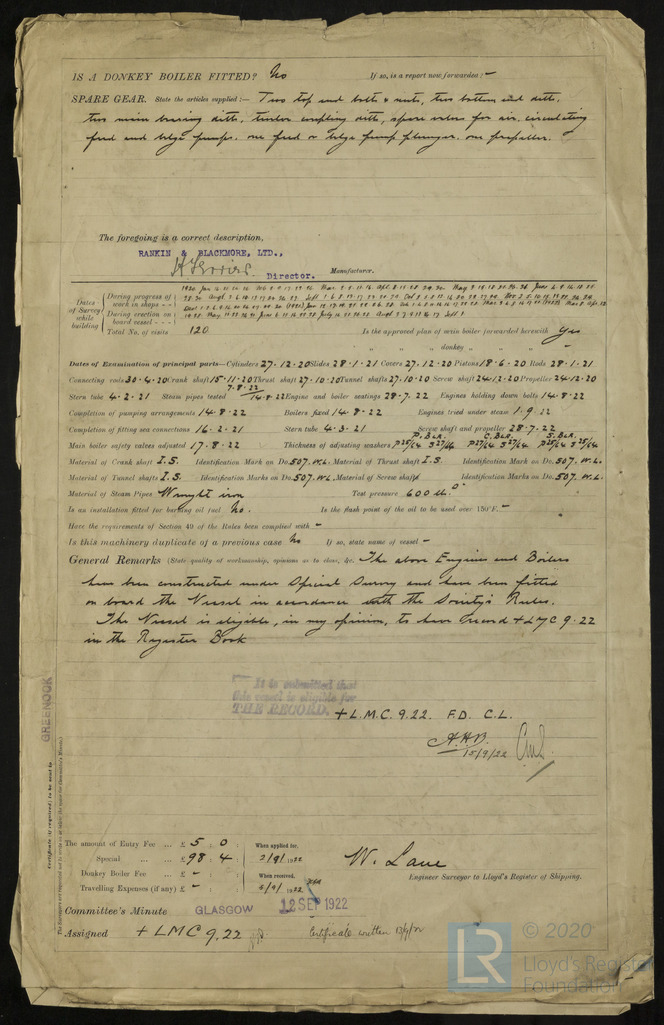 IS A DONKEY BOILER FITTED? No If so, is a report now forwarded:- -
SPARE GEAR. State the articles supplied:- Two top end bolts & nuts, two bottom end ditto,
two main bearing ditto, twelve coupling ditto, spare valves for air, circulating
feed and bilge pumps. one feed & bilge pump plunger. one propeller.
The foregoing is a correct description,
RANKIN & BLACKMORE, LTD.,
Director. Manufacturer.
Dates of Survey while building
During progress of work in shops - -
During erection on board vessel - - -
Total No. of visits 120 Is the approved plan of main boiler forwarded herewith yes
" " " donkey " " "
Dates of Examination of principal parts—Cylinders 27.12.20 Slides 28.1.21 Covers 27.12.20 Pistons 18.6.20 Rods 28.1.21
Connecting rods 30.4.20 Crank shaft 15.11.20 Thrust shaft 27.10.20 Tunnel shafts 27.10.20 Screw shaft 24.12.20 Propeller 24.12.20
Stern tube 4.2.21 Steam pipes tested 7.8.22 14.8.22 Engine and boiler seatings 28.7.22 Engines holding down bolts 14.8.22
Completion of pumping arrangements 14.8.22 Boilers fixed 14.8.22 Engines tried under steam 1.9.22
Completion of fitting sea connections 16.2.21 Stern tube 4.3.21 Screw shaft and propeller 28.7.22
Main boiler safety valves adjusted 17.8.22 Thickness of adjusting washers P.BLR. C.BLR. S.BLR.
Material of Crank shaft I.S. Identification Mark on Do. 507.W.L. Material of Thrust shaft I.S. Identification Mark on Do. 507.W.L.
Material of Tunnel shafts I.S. Identification Marks on Do. 507.W.L. Material of Screw shafts Identification Marks on Do. 507.W.L.
Material of Steam Pipes Wrought iron Test pressure 600 lb.
Is an installation fitted for burning oil fuel No. Is the flash point of the oil to be used over 150°F. -
Have the requirements of Section 49 of the Rules been complied with -
Is this machinery duplicate of a previous case No If so, state name of vessel -
General Remarks (State quality of workmanship, opinions as to class, &c. The above Engines and Boilers
have been constructed under Special Survey and have been fitted
on board the Vessel in accordance with the Society's Rules.
The Vessel is eligible, in my opinion, to have record +LMC 9.22
in the Register Book
It is submitted that
this vessel is eligible for
THE RECORD. + L.M.C. 9.22. F.D. C.L.
A.H.B.
15/9/22
GREENOCK
Certificate (if required) to be sent to
The amount of Entry Fee ... £ 5 : 0 : When applied for,
Special ... ... £ 98 : 4 : 2/9/1922
Donkey Boiler Fee ... £ - : : When received,
Travelling Expenses (if any) £ - : : 1922
W. Lane
Engineer Surveyor to Lloyd's Register of Shipping.
Committee's Minute GLASGOW 12 SEP 1922
Assigned + LMC 9.22 Certificate written
LR © 2020
Lloyd's Register
Foundation